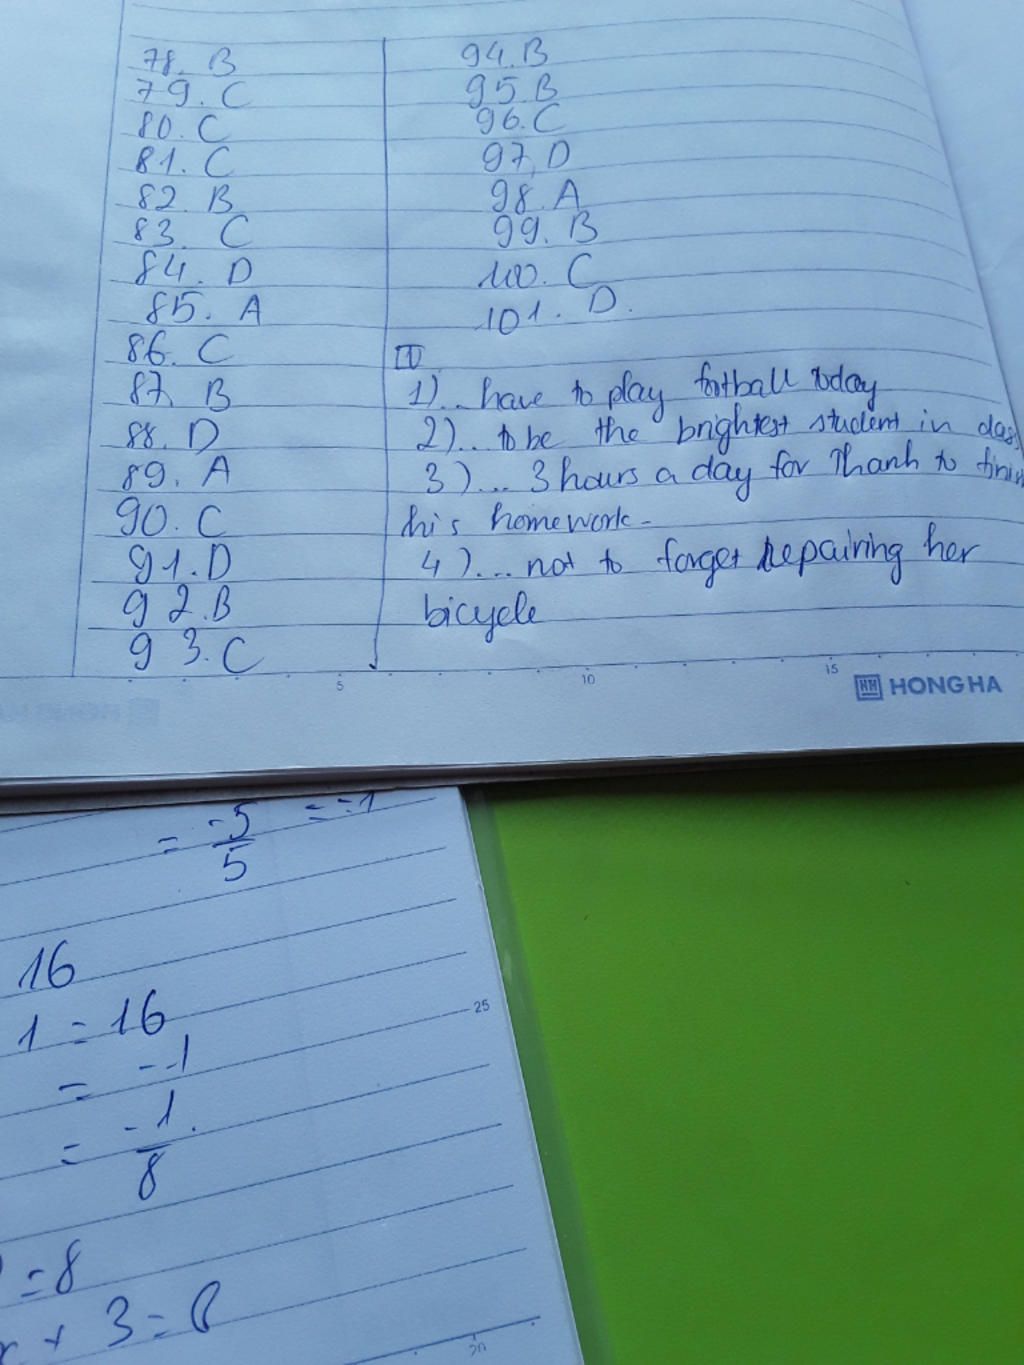 78. B
79. C
80. C
81. C
82. B
83. C
84. D
85. A
86. C
87. B
88. D
89. A
90. C
91. D
92. B
93. C
94. B
95 B
96. C
97. D
98. A
99. B
100. C
101. D.
1)... have to play football today
2)... to be the brightest student in
3)... 3 hours a day for Thanh to
his homework -
4)... not to forget repairing her
bicycle
5 10 15
HH HONG HA
= -5/5 = -1
16
1 = 16
25
= -1
= -1/8
= 8
+ 3 = 8
20